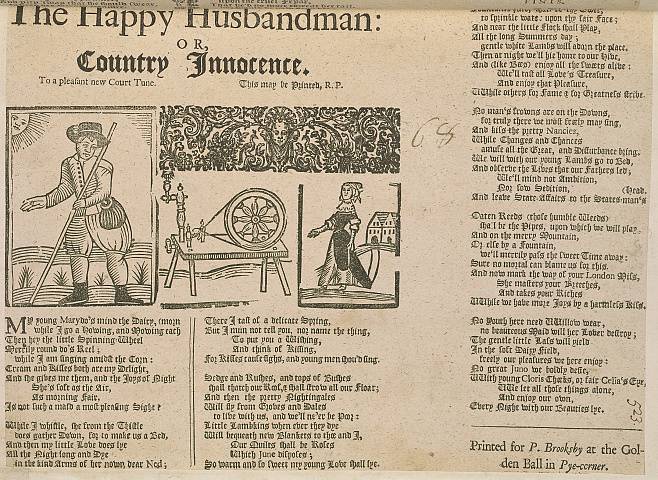 The Happy Husbandman:
OR,
Country Innocence.
To a pleasant new Court Tune.
This may be Printed, R. P.
68
MY young Mary do's mind the Dairy,
while I go a Howing, and Mowing each (morn
Then hey the little Spinning Wheel
Merrily round do's Reel;
while I am singing amidst the Corn:
Cream and Kisses both are my Delight,
And she gives me them, and the Joys of Night
She's soft as the Air,
As morning Fair,
Is not such a maid a most pleasing Sight?
While I whistle, she from the Thistle
does gather Down, for to make us a Bed,
And then my little Love does lye
All the Night long and Dye
in the kind Arms of her nown dear Ned;
There I tast of a delicate Spring,
But I mun not tell you, nor name the thing,
To put you a Wishing,
And think of Kissing,
For Kisses cause sighs, and young men shou'd sing.
Sedge and Rushes, and tops of Bushes
shall thatch our Roof, & shall strow all our Floor;
And then the pretty Nightingales
Will fly from Groves and Dales
to live with us, and we'll ne'er be Poor:
Little Lambkins when ever they dye
Will bequeath new Blankets to thee and I,
Our Quilts shall be Roses
Which June disposes;
So warm and so sweet my young Love shall lye.
to sprinkle water upon thy fair Face;
And near the little Flock shall Play,
All the long Summers day;
gentle white Lambs will adorn the place.
Then at night we'll hie home to our Hive,
And (like Bees) enjoy all the sweets alive:
We'll tast all Love's Treasure,
And enjoy that Pleasure,
While others for Fame & for Greatness strive.
No man's frowns are on the Downs,
for truly there we most freely may sing,
And kiss the pretty Nancies,
While Changes and Chances
amuse all the Great, and Disturbance bring.
We will with our young Lambs go to Bed,
And observe the Lives that our Fathers led;
We'll mind not Ambition,
Nor sow Sedition, (Head.
And leave State-Affairs to the States-man's
Oaten Reeds (those humble Weeds)
shall be the Pipes, upon which we will play.
And on the merry Mountain,
Or else by a Fountain,
we'll merrily pass the sweet Time away:
Sure no mortal can blame us for this.
And now mark the way of your London Miss,
She masters your Breeches,
And takes your Riches
While we have more Joys by a harmless Kiss.
No Youth here need Willow wear,
no beauteous Maid will her Lover destroy;
The gentle little Lass will yield
In the soft Daisy Field,
freely our pleasures we here enjoy:
No great Juno we boldly defie,
With young Cloris Cheeks, or fair Celia's Eye,
We let all those things alone,
And enjoy our own,
Every Night with our Beauties lye.
523
Printed for P. Brooksby at the Gol-
den Ball in Pye-corner.